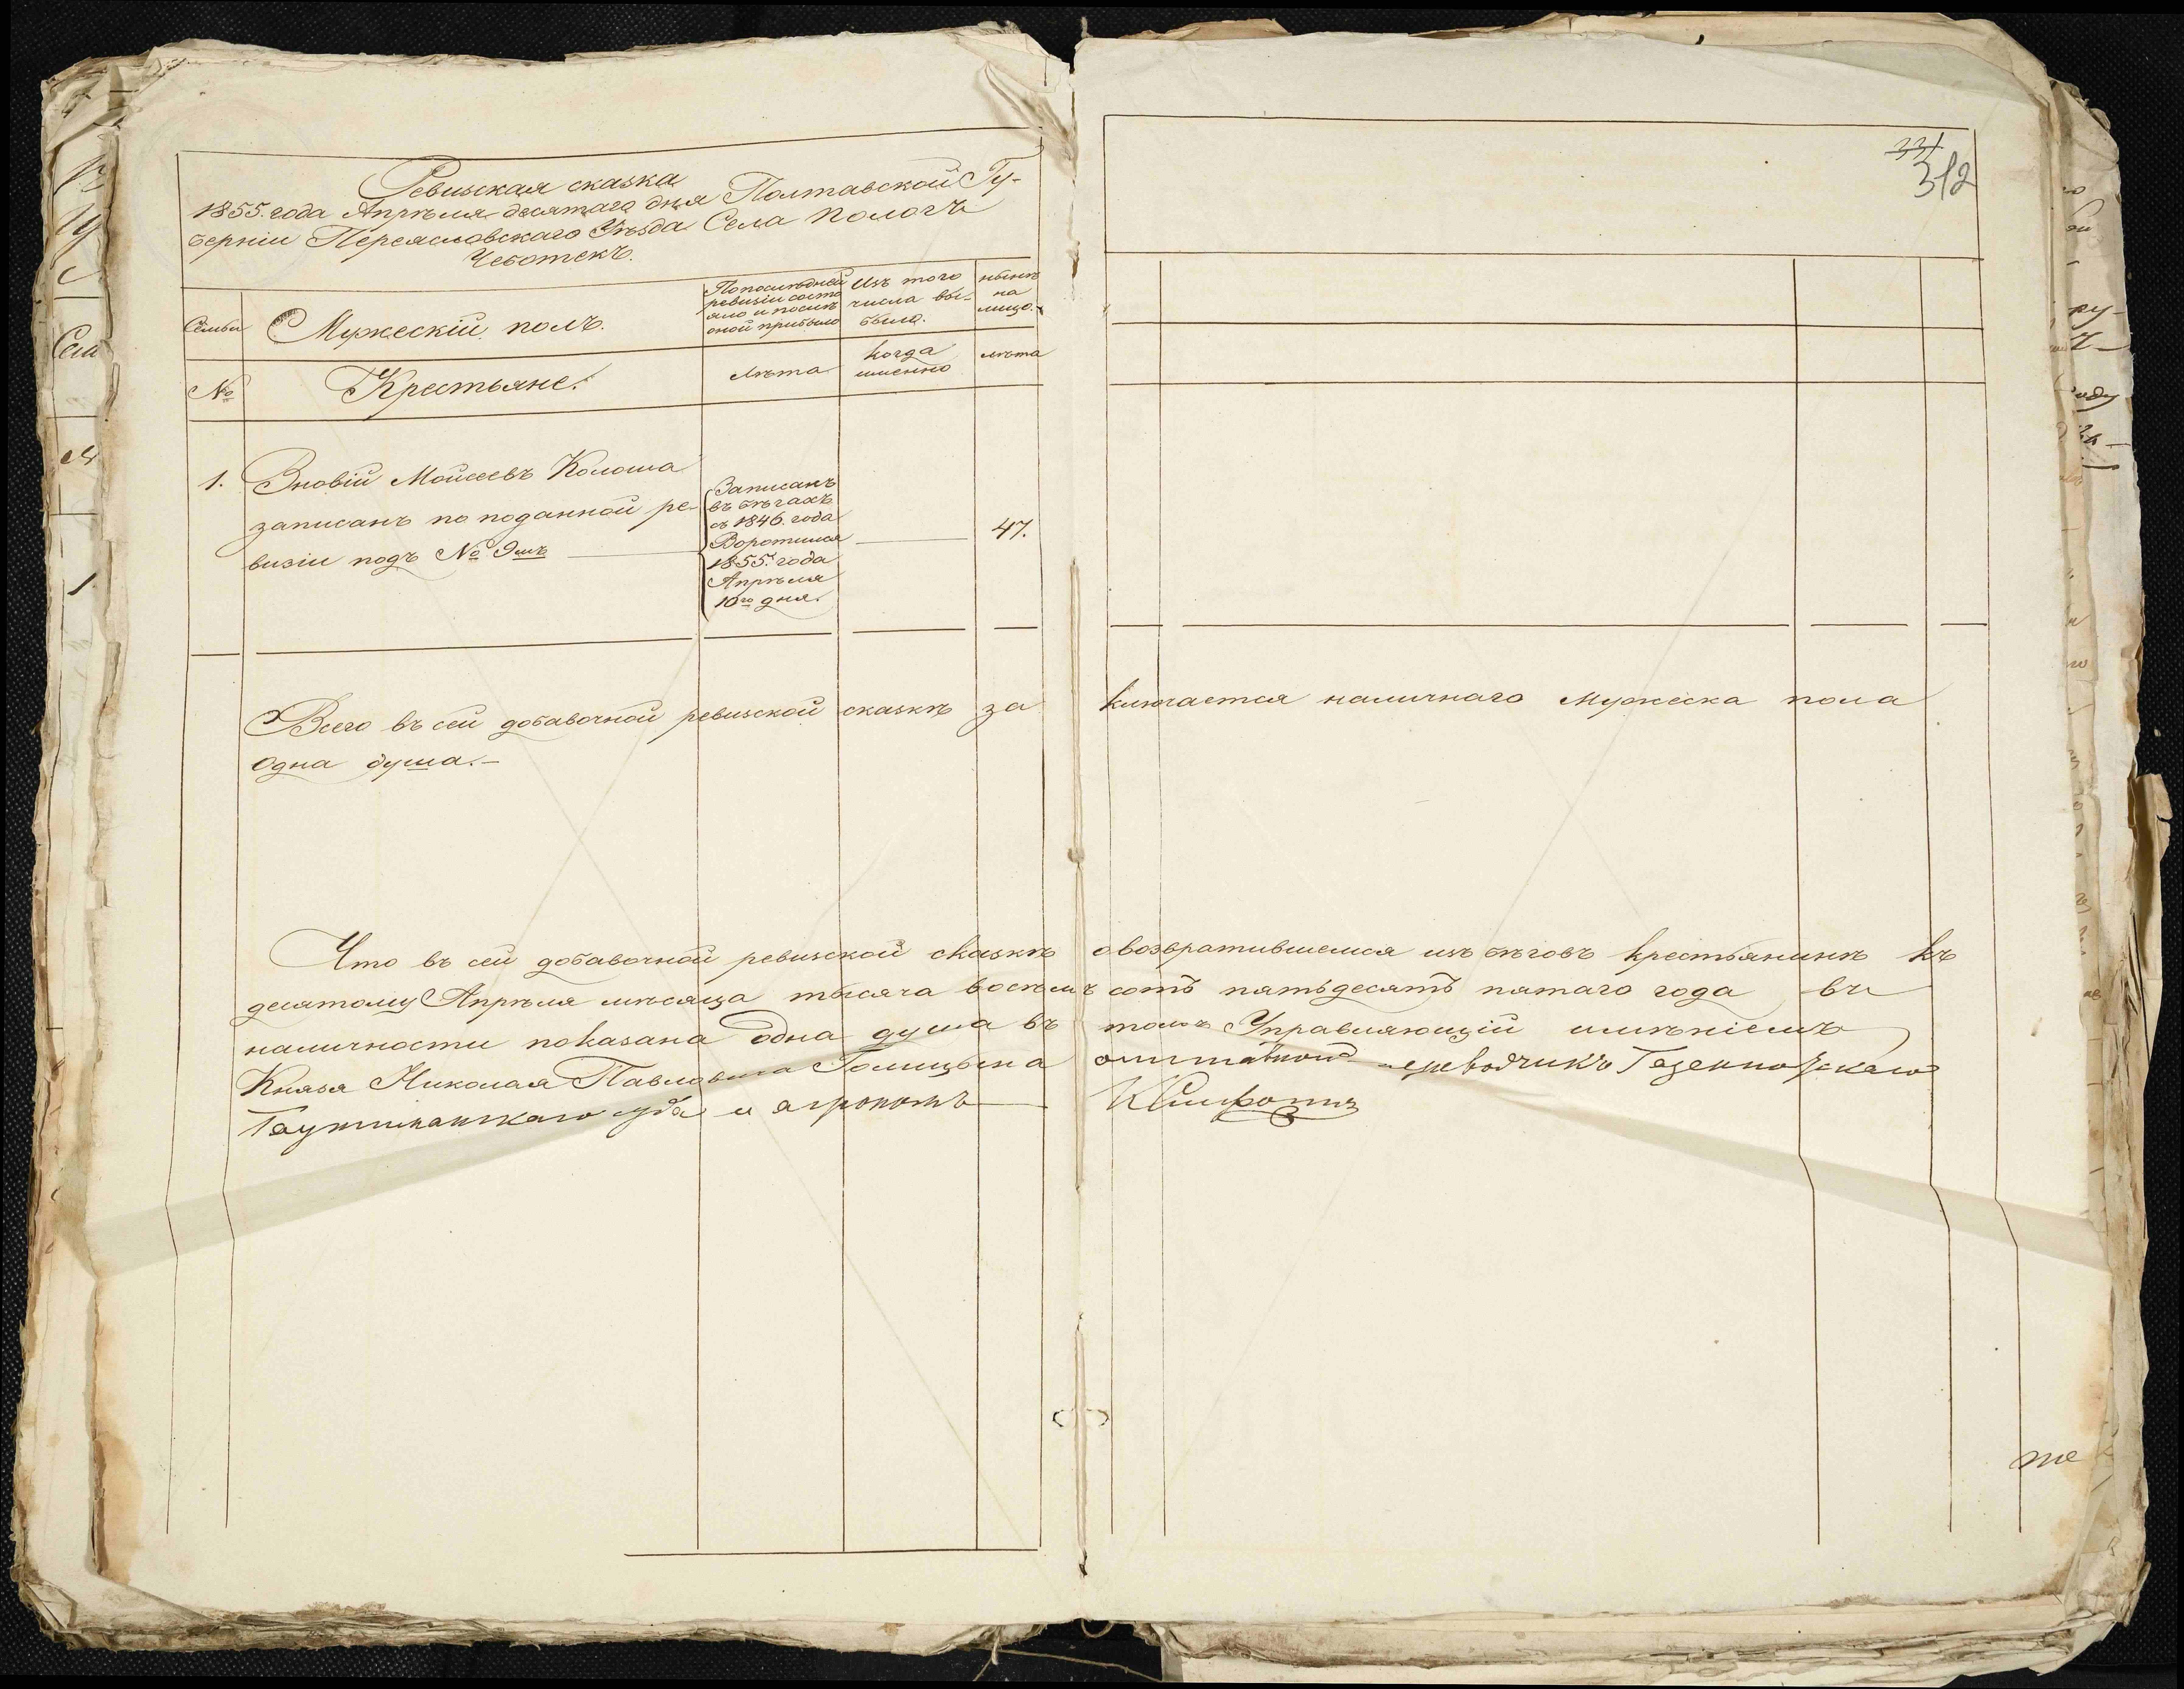 331
312
Ревизская сказка
1855. года Апрѣля десятаго дня Полтавской Гу-
берніи Переясловскаго Уѣзда Села Пологъ
Чеботекъ.
Семьи
Мужескій полъ.
По послѣдней ревизіи состояло и послѣ оной прибыло
Изъ того числа выбыло.
нынѣ на лицо.
№
Крестьяне.
лѣта
когда именно
лѣта
1. Зновій Мойсеевъ Колоша
записанъ по поданной ре-
визіи подъ № 9мъ
Записанъ
въ бѣгахъ
съ 1846. года
Воротился
1855. года
Апрѣля
10го дня.
47.
Всего въ сей добавочной ревизской сказкѣ за ключается наличнаго мужеска пола
одна душа.-
Что въ сей добавочной ревизской сказкѣ о возвратившемся изъ бѣговъ крестьянинѣ къ
десятому Апрѣля мѣсяца тысяча восемь сотъ пятьдесятъ пятаго года въ
наличности показана одна душа въ томъ Управляющій имѣніемъ
Князя Николая Павловича Голицына
и агрономъ
те